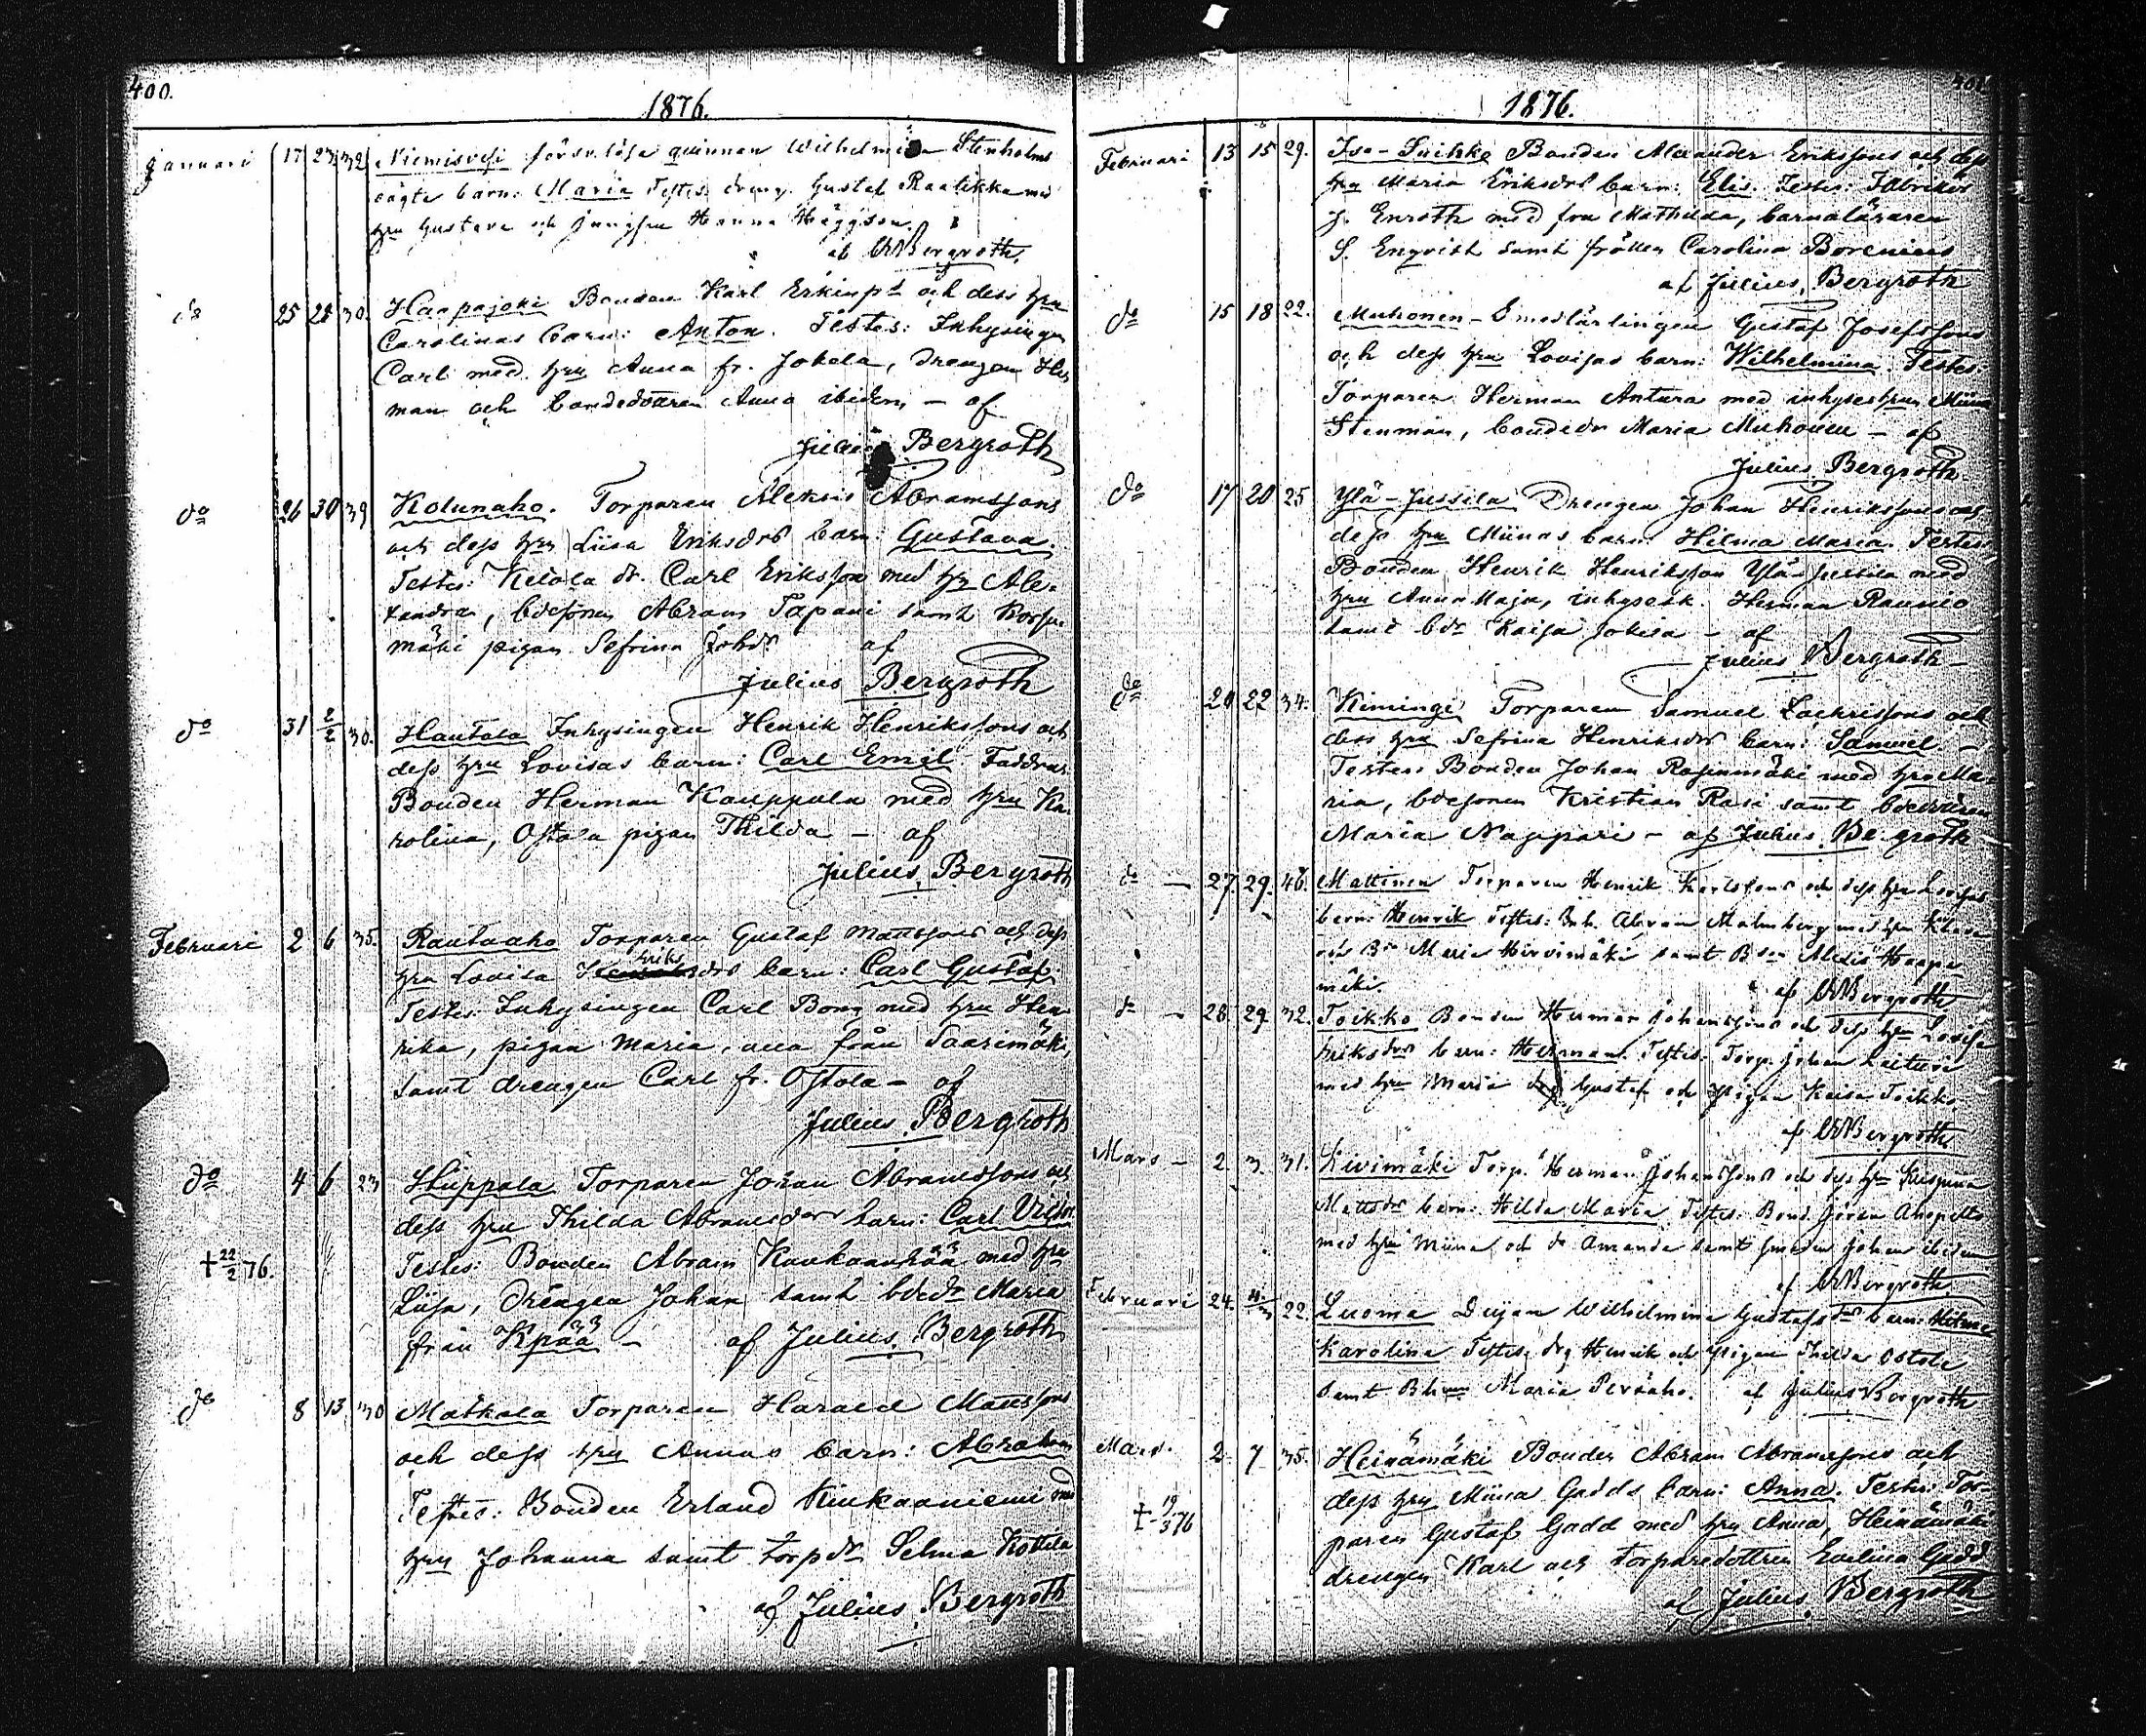 400.
1876.
Januari 17 23 32 Niemisvesi försvarlösa quinnan Wilhelmina Stenholms
oägta barn: Maria Testes: dreng. Gustaf Raatikka med
hru Gustava och jungfru Hanna Häggson.
af Bergroth.
do 25 28 30. Haapajoki Bonden Karl och dess hru
Carolinas barn: Anton. Testes: Inhysingen
Carl med hru Anna fr. Jokela, drengen Her
man och bondedottren Anna ibidem – af
Julius Bergroth
do 26 30 39 Kolunaho. Torparen Aleksis Abramssons
och dess hru Liisa Eriksdrs barn: Gustava.
Testes: Ketola dr. Carl Eriksson med hru Ale-
xandra, bdesonen Abram Tapani samt Korpi-
mäki pigan Sefrina Johdr af
Julius Bergroth
do 31 2/2 30. Hautala Inhysingen Henrik Henrikssons och
dess hru Lovisas barn: Carl Emil. Faddrar
Bonden Herman Kauppala med hru Ka-
rolina, Ostola pigan Thilda – af
Julius Bergroth
Februari 2 6 35. Rautaaho Torparen Gustaf Mattssons och dess
hru Lovisa Eriksdrs barn: Carl Gustaf
Testes: Inhysingen Carl Bom med hru Hen-
rika, pigan Maria, från Saarimäki,
samt drengen Carl fr. Ostola – af
Julius Bergroth
do 4 6 23 Hüppala Torparen Johan Abramssons och
dess hru Thilda Abramsdrs barn: Carl Viktor
† 22/2 76. Testes: Bonden Abram Kaukaanpää med hru
Liisa, drengen Johan samt bdedr Maria
från Kpää – af Julius Bergroth
do 8 13 30 Matkala Torparen Harald Mattssons
och dess hru Annas barn: Abraham
Testes: Bonden Erland Kiukaaniemi med
hru Johanna samt torpdr Selma Kottila
af Julius Bergroth
401.
1876.
Februari 13 15 29. Iso-Luikko Bonden Alexander Erikssons och dess
hru Maria Eriksdrs barn: Elis. Testes: Fabrikör
J. Enroth med fru Mathilda, barnaläraren
S. Enqvist samt fröken Carolina Borenius
af Julius Bergroth
do 15 18 22. Muhonen Smedlärlingen Gustaf Josefssons
och dess hru Lovisas barn: Wilhelmina. Testes:
Torparen Herman Antura med inhyseshru Miina
Stenman, bondedr Maria Muhonen – af
Julius Bergroth
do 17 20 25 Ylä-Jussila Drengen Johan Henrikssons och
dess hru Miinas barn: Hilma Maria. Testes:
Bonden Henrik Henriksson Ylä-Jussila med
hru Anna Maja, inhysesk. Herman Raunio
samt bdr Kaisa Jokisa – af
Julius Bergroth
do 20 22 34. Kimingi Torparen Samuel Zachrissons och
dess hru Sefrina Henriksdrs barn: Samuel –
Testes: Bonden Johan Rosinmäki med hru Ma-
ria, bdesonen Kristian Rasi samt bdedottren
Maria Nappari – af Julius Bergroth
do 27 29. 46. Mattinen Torparen Henrik Karlssons och dess hru Lovisas
barn: Henrik Testes: Inh. Abram Malmberg med hru
och Maria Hirvimäki samt Bson Alexis Haapa
mäki. af Bergroth
do 28 29 32. Toikko Bonden Herman Johanssons och dess hru Lovisa
Eriksdrs barn: Herman. Testes: Torp. Johan Laitura
med hru Maria drg Gustaf och pigan Kaisa Toikko.
af Bergroth
Mars 2 3 31. Kivimäki Torp. Herman Johanssons och dess hru
Mattsdr barn: Hilda Maria Testes: Bond. Johan Ahopelto
med hru Miina, och dr Amanda samt smeden Johan ibidem
af Bergroth
Februari 24. 22. Luoma Deijan Wilhelmina Gustafsdrs barn: Hilma
Karolina Testes: drg Henrik och pigan Thilda Ostola
samt Maria Peräaho. af Julius Bergroth
Mars 2. 7 35. Heinämäki Bonden Abram Abramssons och
dess hru Miina Gadds barn: Anna. Testes: Tor-
† 19/3 76 paren Gustaf Gadd med hru Anna, Heinämäki
drengen Karl och Torparedottren Evelina Gadd
af Julius Bergroth